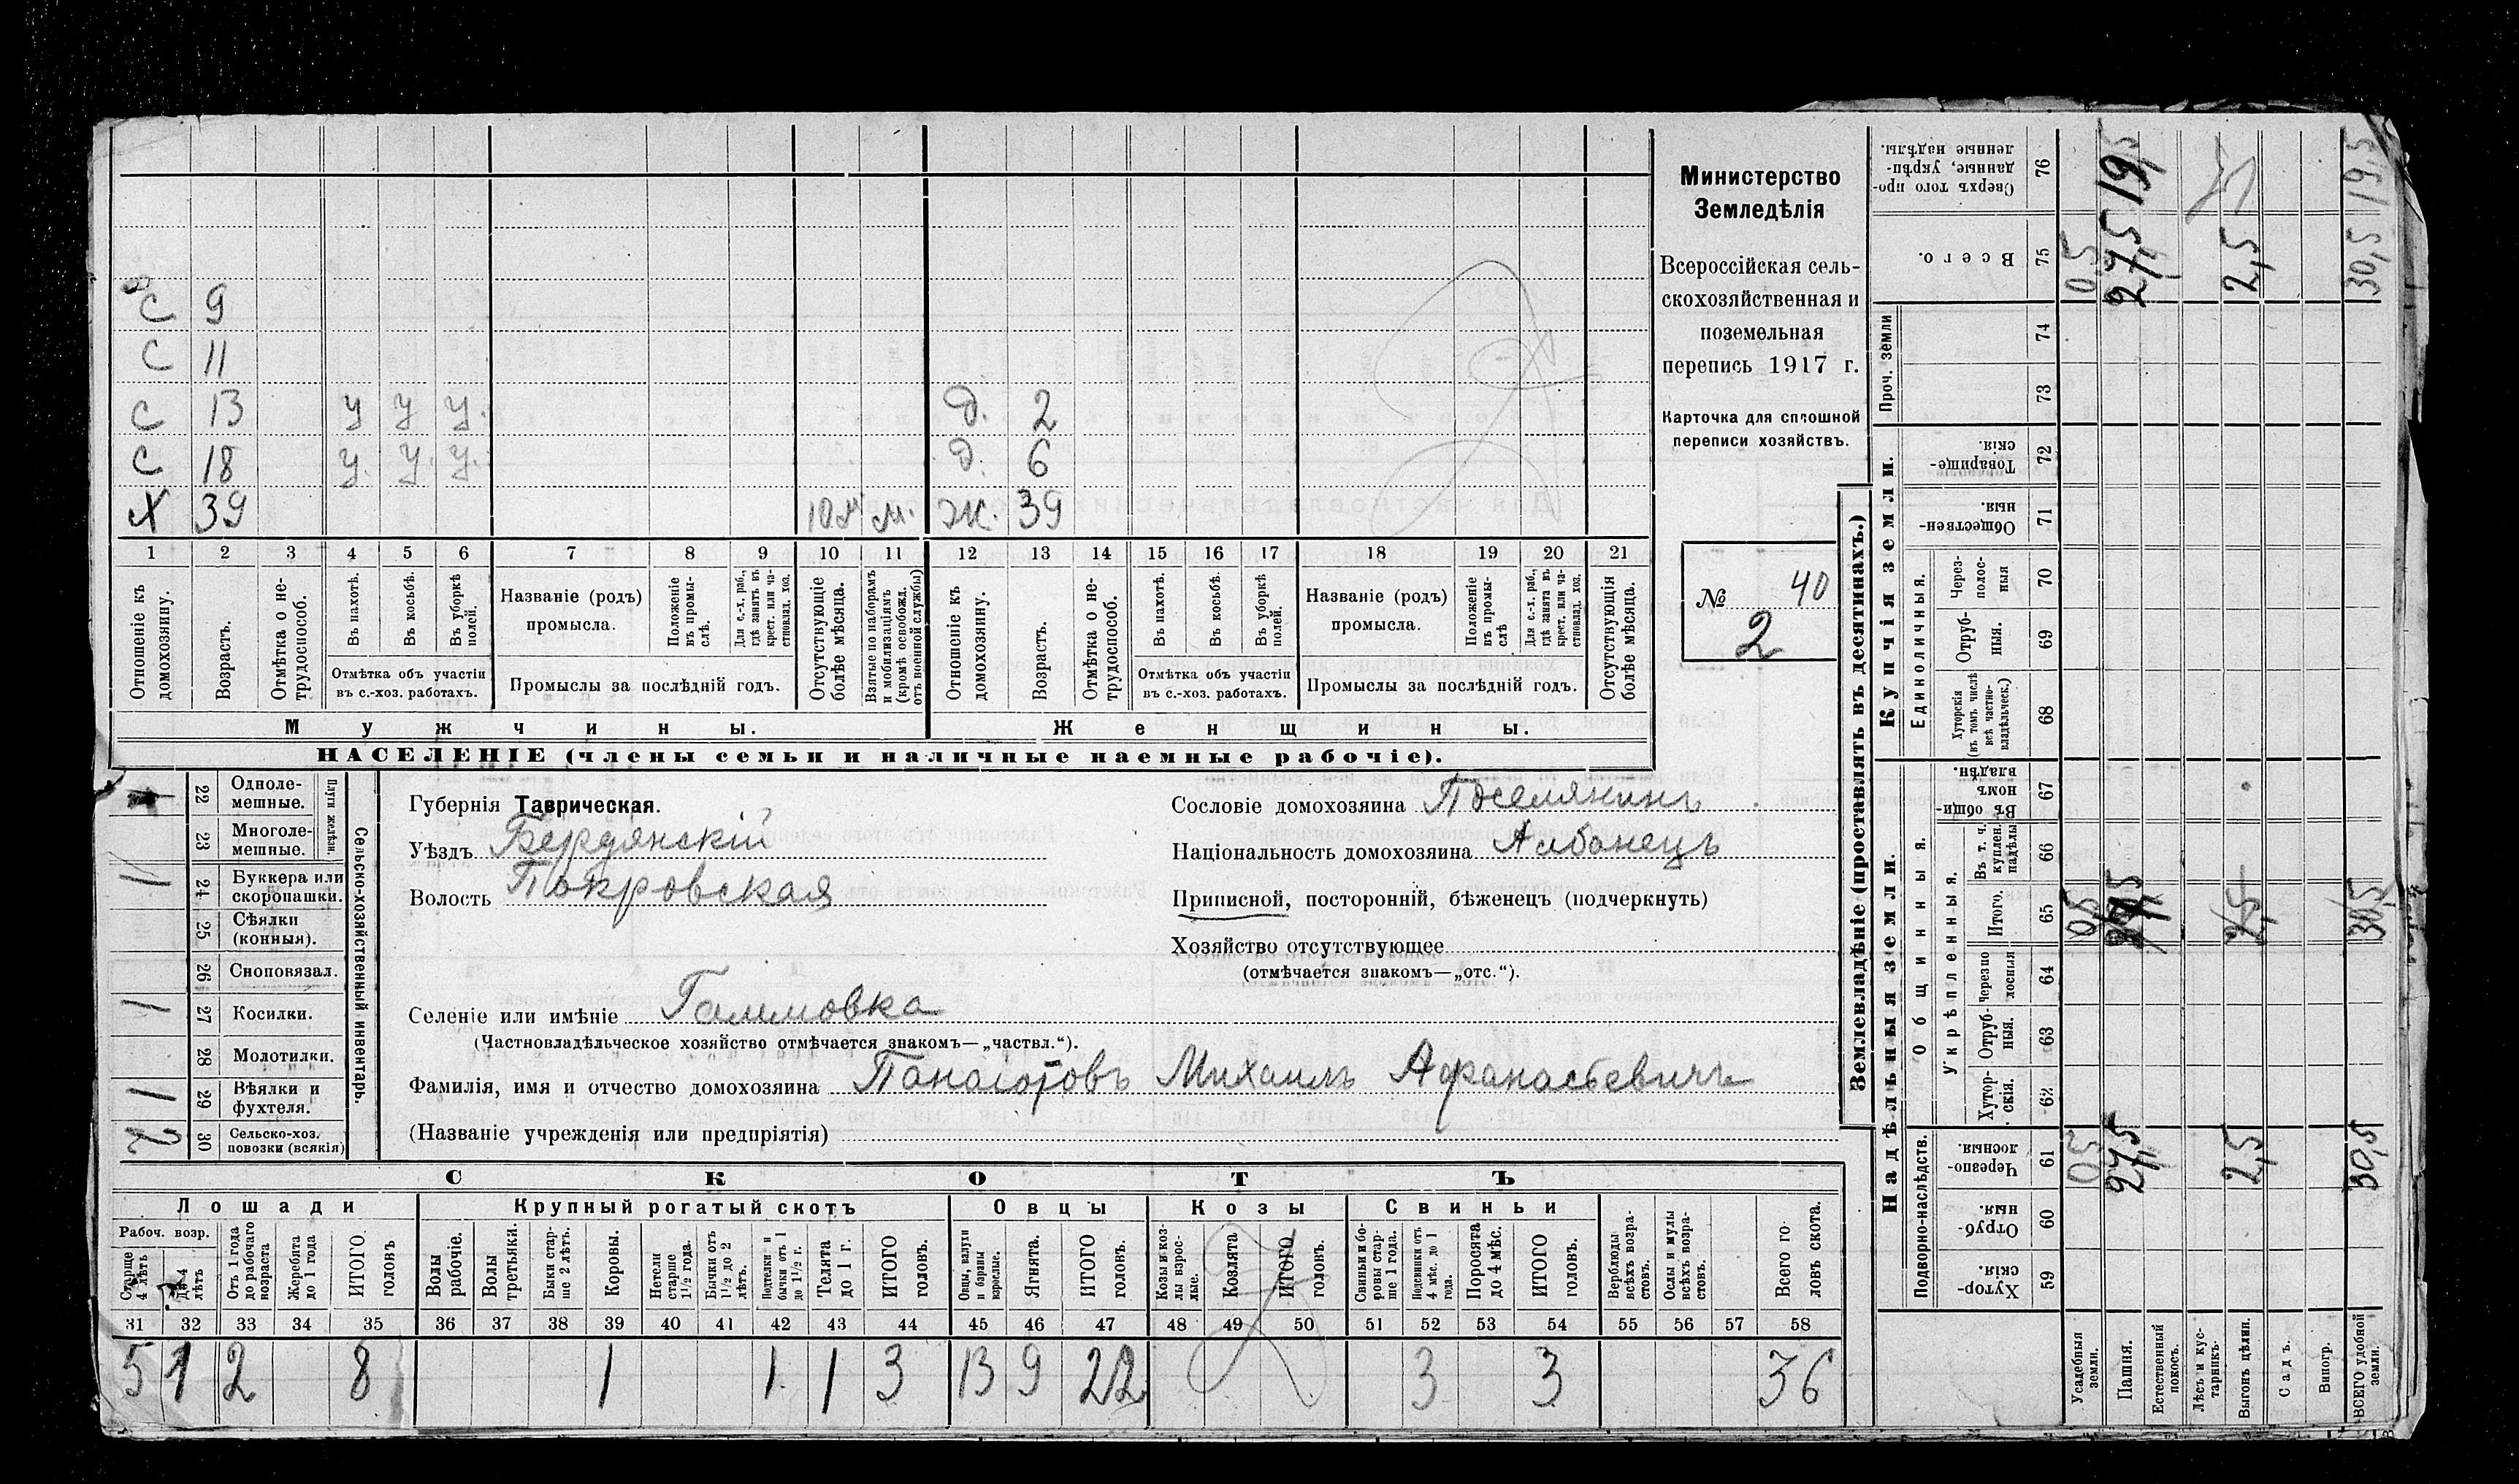 С 9
С 11
С 13 у у у. д. 2
С 18 у. у. у. д. 6
Х 39 10 м м. ж. 39
1 2 3 4 5 6 7 8 9 10 11 12 13 14 15 16 17 18 19 20 21
Отношеніе къ домохозяину.
Возрастъ.
Отмѣтка о не-трудоспособ.
Въ пахотѣ.
Въ косьбѣ.
Въ уборкѣ полей.
Отмѣтка объ участіи
въ с.-хоз. работахъ.
Названіе (родъ)
промысла.
Положеніе въ промы-слѣ.
Для с.-х. раб., гдѣ занятъ въ крест. или ча-стновлад. хоз.
Промыслы за послѣдній годъ.
Отсутствующіе болѣе мѣсяца.
Взятые по наборамъ и мобилизаціямъ (кромѣ освобожл. отъ военной службы)
Отношеніе къ домохозяину.
Возрастъ.
Отмѣтка о не-трудоспособ.
Въ пахотѣ.
Въ косьбѣ.
Въ уборкѣ полей.
Отмѣтка объ участіи
въ с.-хоз. работахъ.
Названіе (родъ)
промысла.
Положеніе въ промы-слѣ
Для с.-х. раб., гдѣ занята въ крест. или ча-стновлад. хоз.
Промыслы за послѣдній годъ.
Отсутствующія болѣе мѣсяца.
Мужчины.
Женщины.
НАСЕЛЕНІЕ (члены семьи и наличные наемные рабочіе).
Министерство
Земледѣлія
Всероссійская сель-
скохозяйственная и
поземельная
перепись 1917 г.
Карточка для сплошной
переписи хозяйствъ.
№ 40
2
22 Одноле-мешные.
23 Многоле-мешные.
Плуги желѣзн.
24 Буккера или скоропашки.
25 Сѣялки (конныя).
26 Сноповязал.
1 27 Косилки.
28 Молотилки.
1 29 Вѣялки и фухтеля.
2 30 Сельско-хоз. повозки (всякія)
Сельско-хозяйственный инвентарь.
Губернія Таврическая.
Уѣздъ Бердянскій
Волость Покровская
Селеніе или имѣніе Гаммовка
(Частновладѣльческое хозяйство отмѣчается знакомъ—„частвл.“).
Фамилія, имя и отчество домохозяина Панаіотовъ Михаилъ Афанасьевичъ
(Названіе учрежденія или предпріятія)
Сословіе домохозяина Поселянинъ
Національность домохозяина Албанецъ
Приписной, посторонній, бѣженецъ (подчеркнуть)
Хозяйство отсутствующее
(отмѣчается знакомъ—„отс.“).
СКОТЪ
Лошади
Крупный рогатый скотъ
Овцы
Козы
Свиньи
Рабоч. возр.
Старше 4 лѣтъ
До 4 лѣтъ
Отъ 1 года до рабочаго возраста
Жеребята до 1 года
ИТОГО головъ
Волы рабочіе.
Волы третьяки.
Быки стар-ше 2 лѣтъ.
Коровы.
Нетели старше 1½ года.
Бычки отъ 1½ до 2 лѣтъ.
Подтелки и бычки отъ 1 до 1½ г.
Телята до 1 г.
ИТОГО головъ.
Овцы, валухи и бараны взрослые.
Ягнята.
ИТОГО головъ.
Козы и коз-лы взрос-лые.
Козлята
ИТОГО головъ.
Свиньи и бо-ровы стар-ше 1 года.
Подсвинки отъ 4 мѣс. до 1 года.
Поросята до 4 мѣс.
ИТОГО головъ.
Верблюды всѣхъ возра-стовъ.
Ослы и мулы всѣхъ возра-стовъ.
Всего го-ловъ скота.
31 32 33 34 35 36 37 38 39 40 41 42 43 44 45 46 47 48 49 50 51 52 53 54 55 56 57 58
5 1 2 8 1 1 1 3 13 9 22 3 3 36
Землевладѣніе (проставлять въ десятинахъ.)
Надѣльныя земли.
Купчія земли.
Проч. земли
Подворно-наслѣдств.
Общинныя.
Укрѣпленныя.
Единоличныя.
Сверхъ того про-данные, укрѣп-ленные надѣлы. 76
Всего. 75
74
73
Товарище-скія. 72
Обществен-ныя. 71
Через-полос-ныя 70
Отруб-ныя. 69
Хуторскія (въ томъ числѣ всѣ частно-владѣльческ.) 68
Въ общи-номъ владѣн. 67
Въ т. ч. куплен. надѣлы 66
Итого. 65
Черезпо-лосныя 64
Отруб-ныя. 63
Хутор-скія. 62
Черезпо-лосныя 61
Отруб-ныя. 60
Хутор-скія. 59
Усадебныя земли. 0,5 0,5 0,5
Пашня. 27,5 27,5 19,5
Естественный покосъ.
Лѣсъ и кус-тарникъ.
Выгонъ цѣлин. 2,5 2,5 2,5
Садъ.
Виногр.
ВСЕГО удобной земли. 30,5 30,5 30,5 19,5